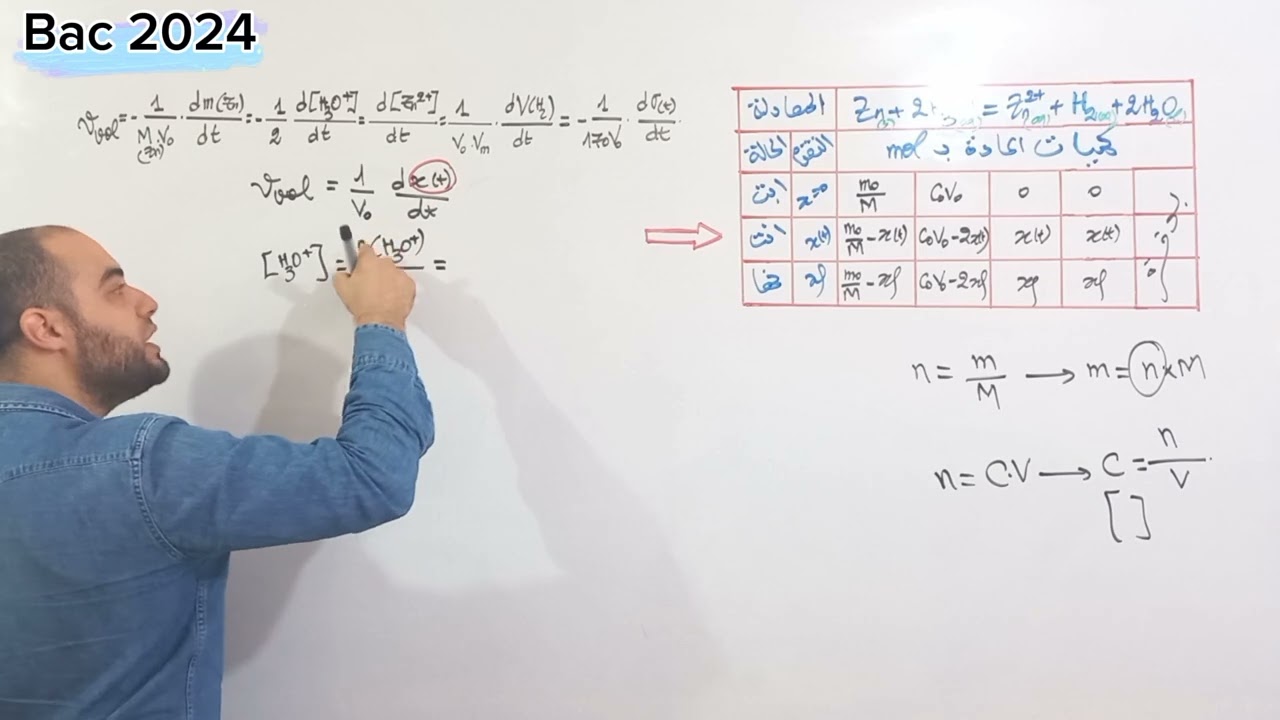 Bac 2024
Vvol = - 1/(M(Zn).V₀) . dm(Zn)/dt = - 1/2 d[H₃O⁺]/dt = d[Zn²⁺]/dt = 1/(V₀.Vm) . dV(H₂)/dt = - 1/170V . dσ(t)/dt .
Vvol = 1/V₀ dx(t)/dt
[H₃O⁺] = (H₃O⁺) =
المعادلة Zn(s) + 2 = Zn²⁺(aq) + H₂(g) + 2H₂O(l)
الحالة التقدم كميات المادة بـ mol
ابت x=0 m₀/M C₀V₀ 0 0
انت x(t) m₀/M - x(t) C₀V₀-2x(t) x(t) x(t)
نها xf m₀/M - xf C₀V₀-2xf xf xf
n = m/M → m = n×M
n = C.V → C = n/V .
[ ]